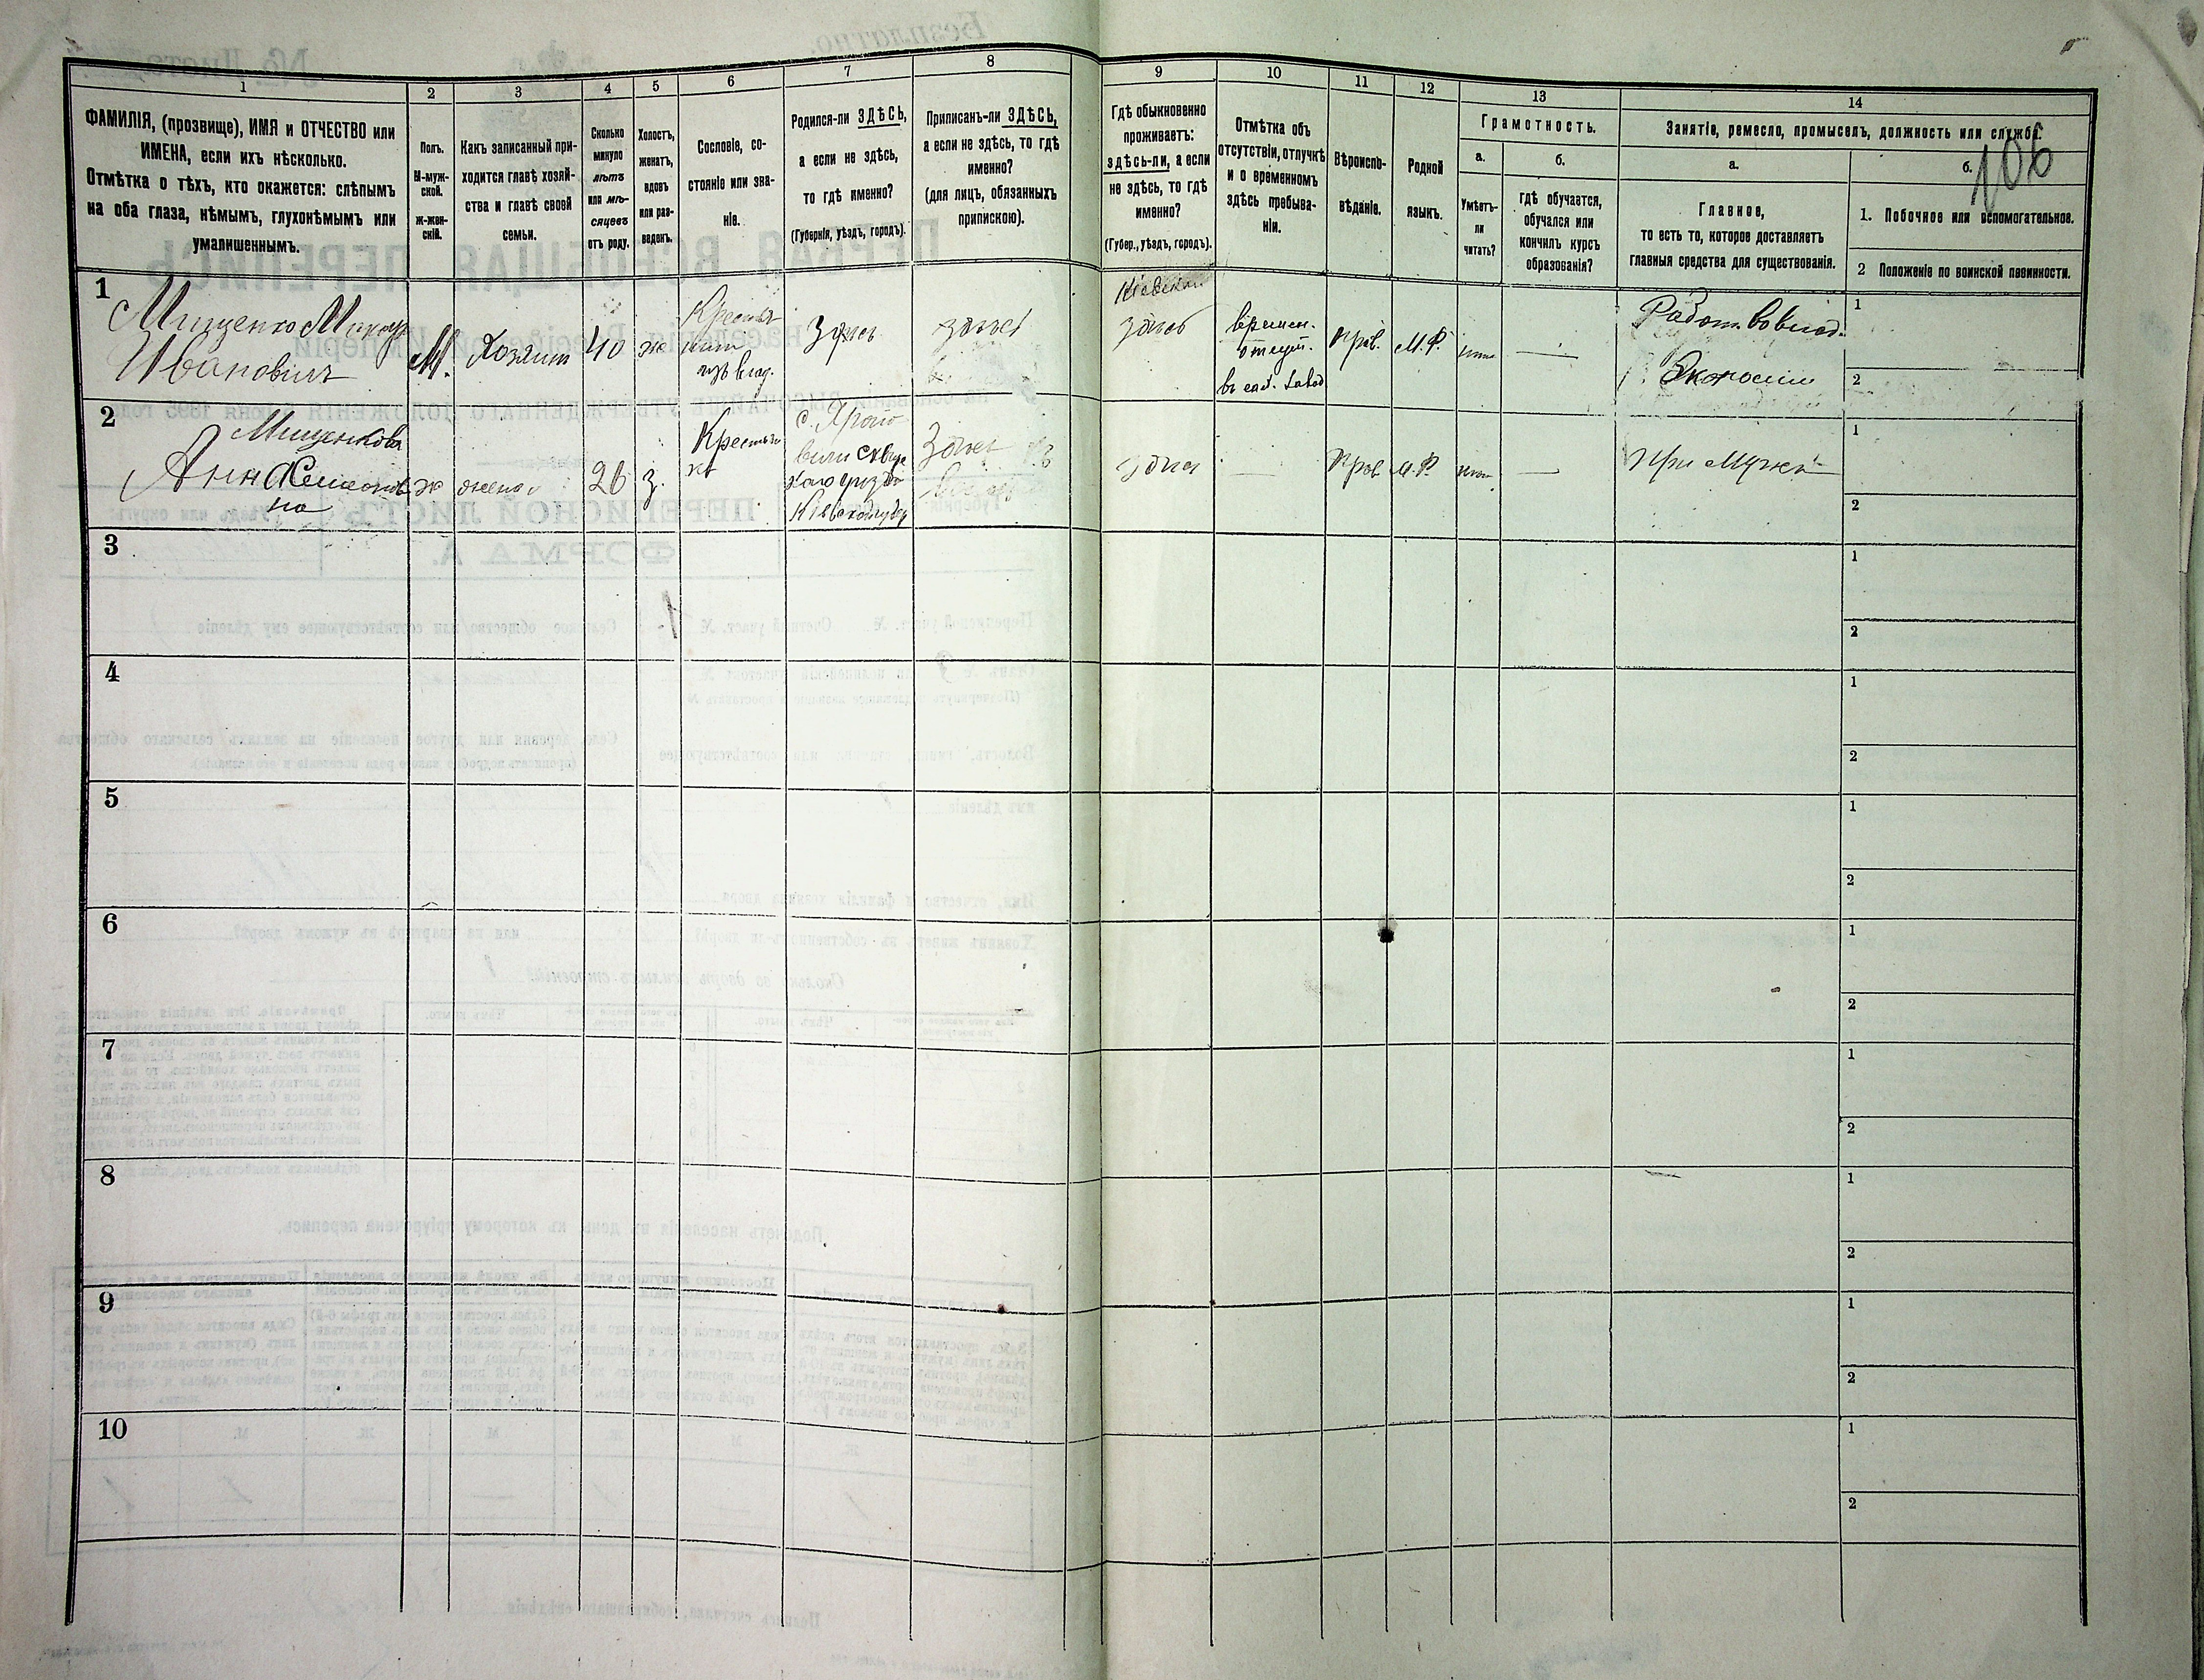 1
ФАМИЛІЯ, (прозвище), ИМЯ и ОТЧЕСТВО или
ИМЕНА, если ихъ нѣсколько.
Отмѣтка о тѣхъ, кто окажется: слѣпымъ
на оба глаза, нѣмымъ, глухонѣмымъ или
умалишеннымъ.
2
Полъ.
М-муж-
ской.
ж-жен-
скій.
3
Какъ записанный при-
ходится главѣ хозяй-
ства и главѣ своей
семьи.
4
Сколько
минуло
лѣтъ
или мѣ-
сяцевъ
отъ роду.
5
Холостъ,
женатъ,
вдовъ
или раз-
веденъ.
6
Сословіе, со-
стояніе или зва-
ніе.
7
Родился-ли ЗДѢСЬ,
а если не здѣсь,
то гдѣ именно?
(Губернія, уѣздъ, городъ).
8
Приписанъ-ли ЗДѢСЬ,
а если не здѣсь, то гдѣ
именно?
(для лицъ, обязанныхъ
припискою).
9
Гдѣ обыкновенно
проживаетъ:
здѣсь-ли, а если
не здѣсь, то гдѣ
именно?
(Губер., уѣздъ, городъ).
10
Отмѣтка объ
отсутствіи, отлучкѣ
и о временномъ
здѣсь пребыва-
ніи.
11
Вѣроиспо-
вѣданіе.
12
Родной
языкъ.
13
Грамотность.
а.
Умѣетъ-
ли
читать?
б.
гдѣ обучается,
обучался или
кончилъ курсъ
образованія?
14
Занятіе, ремесло, промыселъ, должность или служба.
106
а.
Главное,
то есть то, которое доставляетъ
главныя средства для существованія.
б.
1. Побочное или вспомогательное.
2 Положеніе по воинской повинности.
1
Мищенко Макар
Ивановичъ
М.
Хозяин
40
ж
Крестья
изъ влад.
Здѣсь
здѣсь
здѣсь
времен.
прав.
М.Р.
—
Работ. во влад.
Экономіи
1
2
2
Мищенкова
Анна Семенов
на
ж
жена
26
з.
Крестьян
ка
с.
вили Сквир
скаго уѣзда
Кіевской губер
Здѣсь
здѣсь
—
Прав
М.Р.
—
При мужѣ
1
2
3
1
2
4
1
2
5
1
2
6
1
2
7
1
2
8
1
2
9
1
2
10
1
2